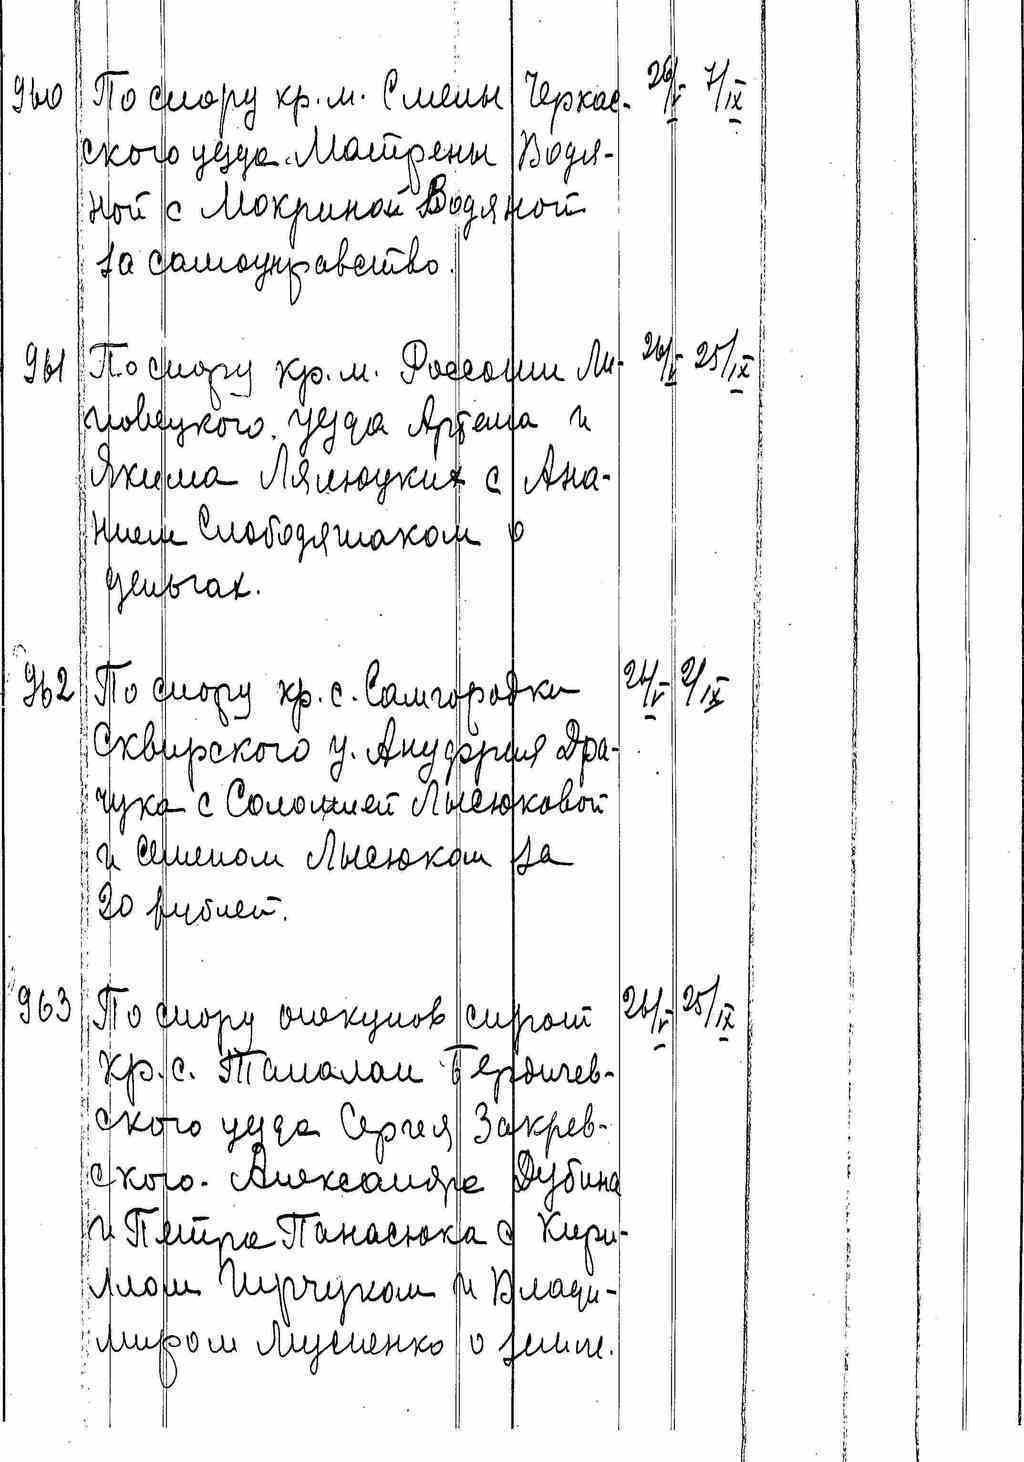 960 По спору кр. м. Смелы Черкас- 26/V 7/IX
ского уезда Матрены Водя-
ной с Мокриной Водяной
за самоуправство.
961 По спору кр. м. Россоши Ли- 26/V 25/IX
повецкого уезда Артема и
Якима Лялюцких с Ана-
нием Слободяшаком о
деньгах.
962 По спору кр. с. Самгородки 26/V 2/IX
Сквирского у. Ануфрия Дра-
чука с Соломией Лысюковой
и Семеном Лысюком за
20 рублей.
963 По спору опекунов сирот 26/V 25/IX
кр. с. Бердичев-
ского уезда Сергея Закрев-
ского. Александра Дубина
и Петра Панасюка с Кири-
ллом и Влади-
миром о земле.